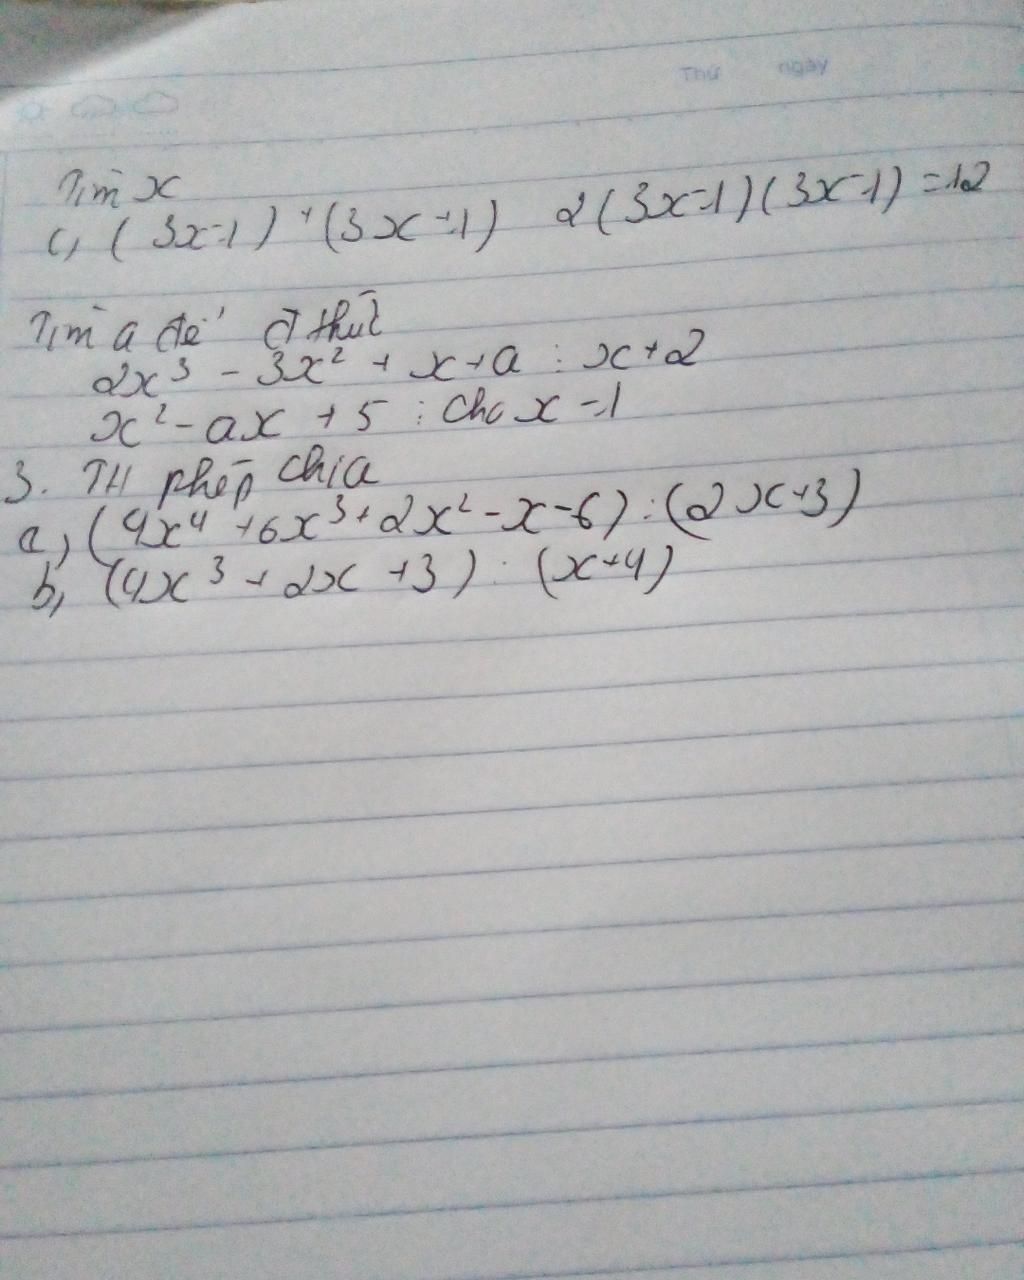 Thứ ngày
Tìm x
c, (3x-1) + (3x-1) 2(3x-1)(3x-1) = 12
Tìm a để đ thức
2x³ - 3x² + x + a : x+2
x² - ax + 5 : cho x - 1
3. TH phép chia
a, (4x⁴ + 6x³ + 2x² - x - 6) : (2x+3)
b, (4x³ + 2x + 3) : (x+4)